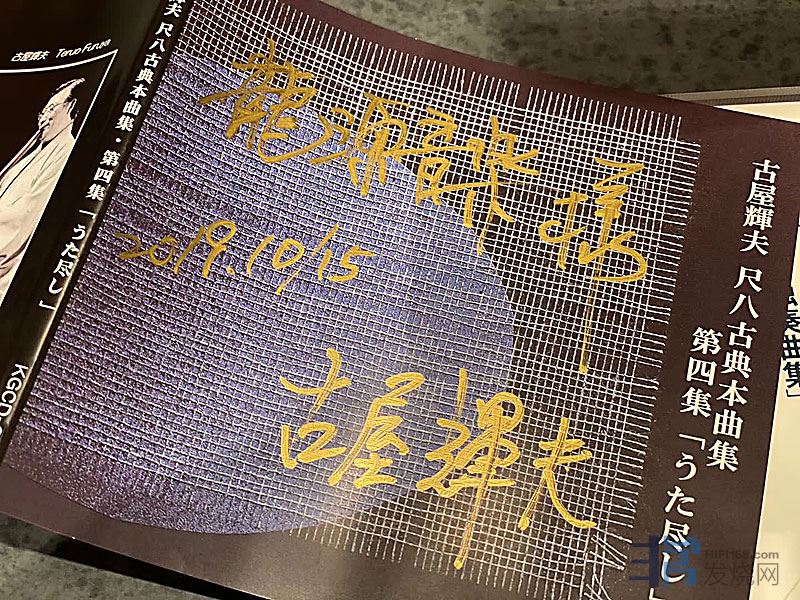 古屋輝夫 Teruo Furuya
夫 尺八古典本曲集・第四集「うた尽し」
KGCD
龍源音楽 様
2019.10/15
古屋輝夫
古屋輝夫 尺八古典本曲集
第四集「うた尽し」
曲集」
HIFI168.com
发烧网